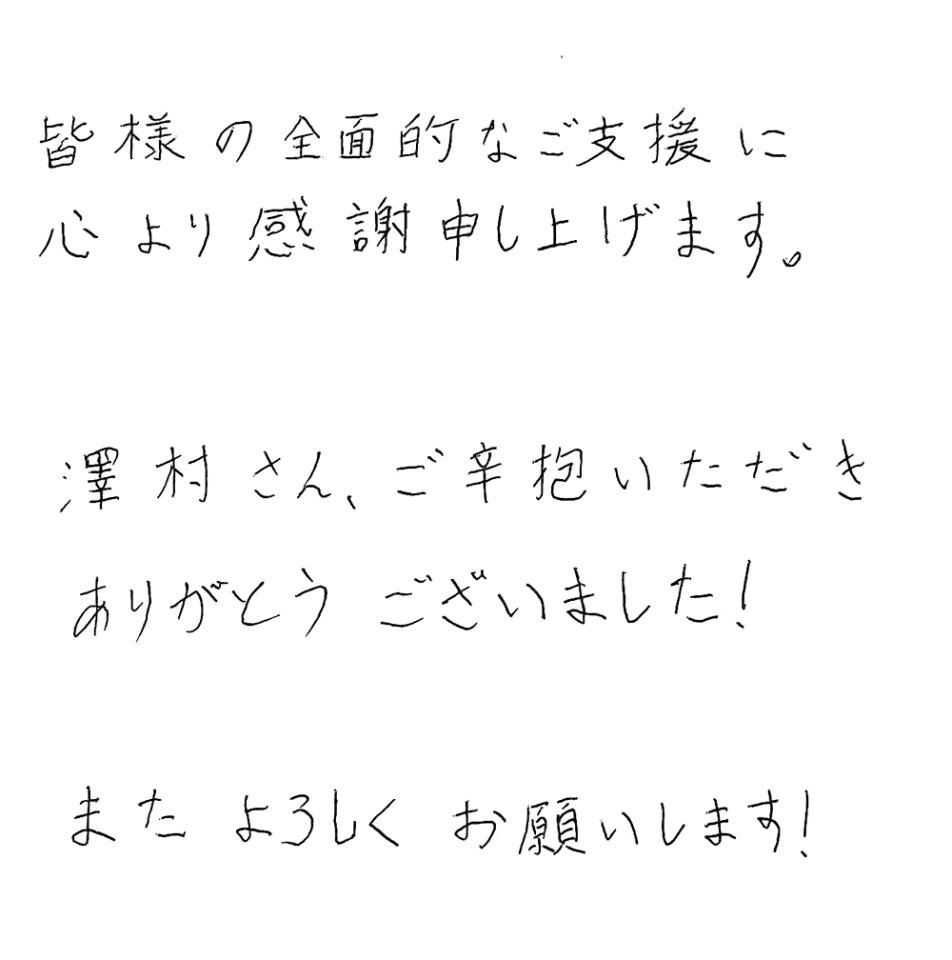 皆様の全面的なご支援に
心より感謝申し上げます。
澤村さん、ご辛抱いただき
ありがとうございました!
またよろしくお願いします!